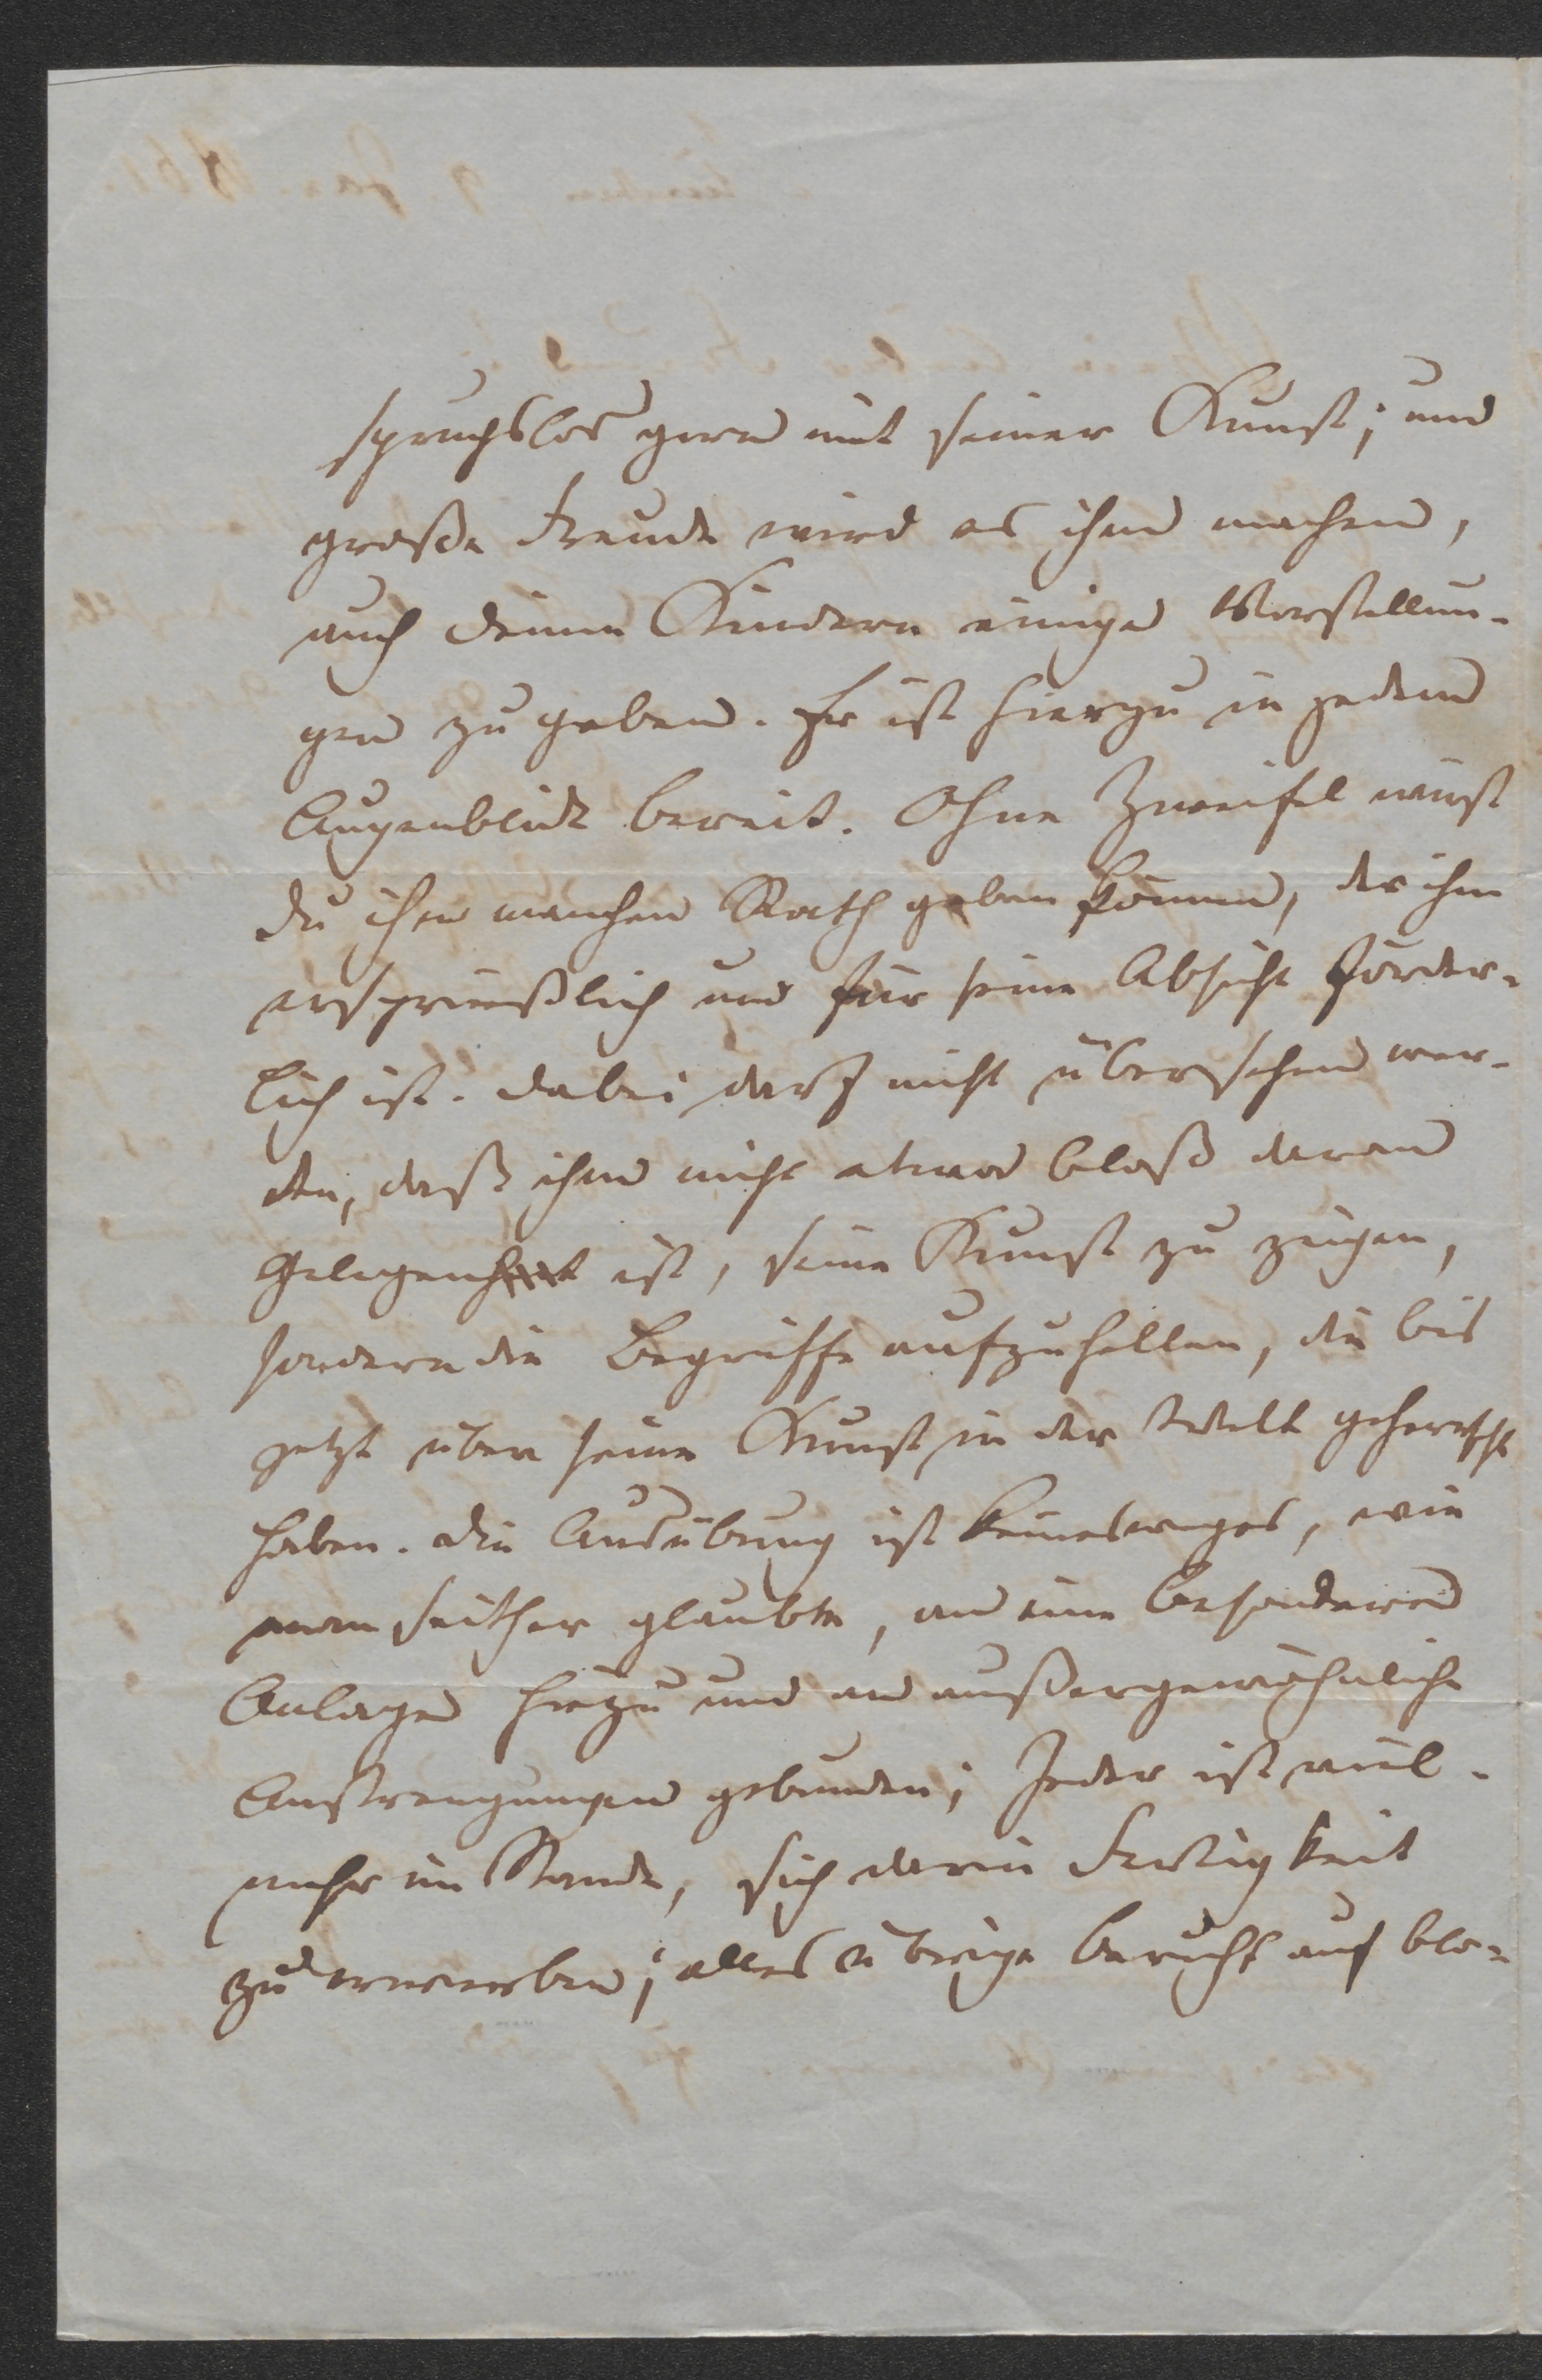 spruchslos gern mit seiner Kunst; und
große Freude wird es ihm machen,
auch Deinen Kindern einige Vorstellun-
gen zu geben. Er ist hierzu in jedem
Augenblick bereit. Ohne Zweifel wirst
Du ihm manchen Rath geben können, der ihm
ersprießlich und für seine Absicht förder-
lich ist. Dabei darf nicht übersehen wer-
den, daß ihm nicht etwa bloß daran
gelegen ist, seine Kunst zu zeigen,
sondern die Begriffe aufzuhellen, die bis
jetzt über seine Kunst in der Welt geherrscht
haben. Die Ausübung ist keineswegs, wie
man seither glaubte, an eine besondere
Anlage hiezu und an außergewöhnliche
Anstrengungen gebunden; Jeder ist viel-
mehr im Stande, sich darin Fertigkeit
zu erwerben; alles übrige beruht auf blo-